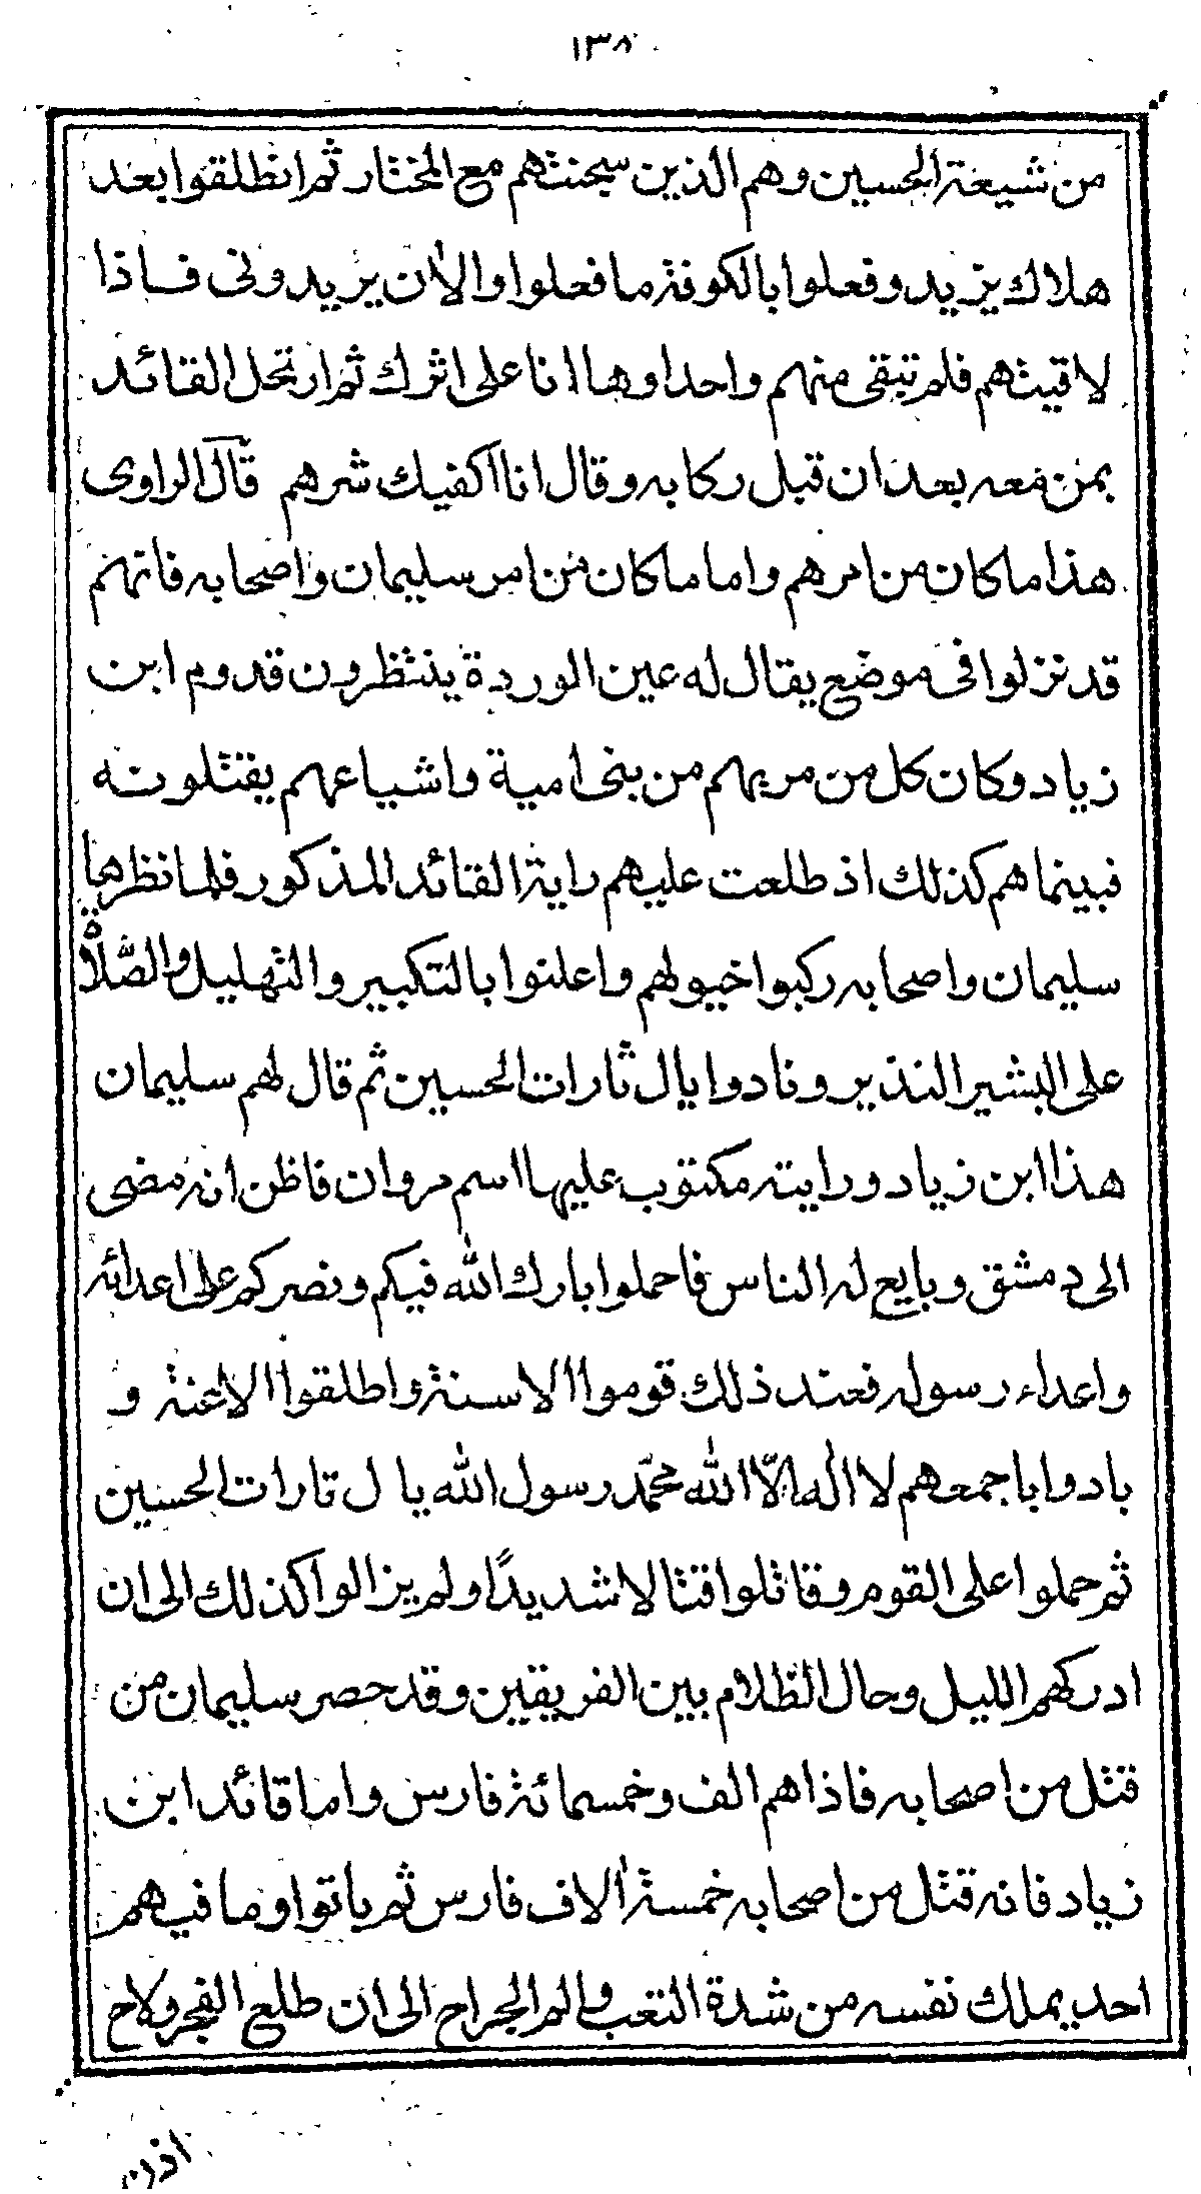 ١٣٨
من شيعة الحسين وهم الذين سجنتهم مع المختار ثم انطلقوا بعد
هلاك يزيد وفعلوا بالكوفة ما فعلوا والان يريدونى فاذا
لاقيتهم فلم تبقى منهم واحدا وها انا على اثرك ثم ارتحل القائد
بمن معه بعد ان قبل ركابه وقال انا اكفيك شرهم قال الراوى
هذا ما كان من امرهم واما ما كان من امر سليمان واصحابه فانهم
قد نزلوا فى موضع يقال له عين الوردة ينتظرون قدوم ابن
زياد وكان كل من مر بهم من بنى امية واشياعهم يقتلونه
فبينما هم كذلك اذ طلعت عليهم راية القائد المذكور فلما نظرها
سليمان واصحابه ركبوا خيولهم واعلنوا بالتكبير والتهليل والصّلاة
على البشير النذير ونادوا يال ثارات الحسين ثم قال لهم سليمان
هذا ابن زياد ورايته مكتوب عليها اسم مروان فاظن انه مضى
الى دمشق وبايع له الناس فاحملوا بارك الله فيكم ونصركم على اعدائه
واعداء رسوله فعند ذلك قوموا الاسنة واطلقوا الاعنة و
بادوا باجمعهم لا اله الّا الله محمّد رسول الله يا ل تارات الحسين
ثم حملوا على القوم وقاتلوا قتالا شديدًا ولم يزالوا كذلك الى ان
ادركهم الليل وحال الظّلام بين الفريقين وقد حصر سليمان من
قتل من اصحابه فاذا هم الف وخمسمائة فارس واما قائد ابن
زياد فانه قتل من اصحابه خمسة الاف فارس ثم باتوا وما فيهم
احد يملك نفسه من شدة التعب والم الجراح الى ان طلع الفجر ولاح
اذن